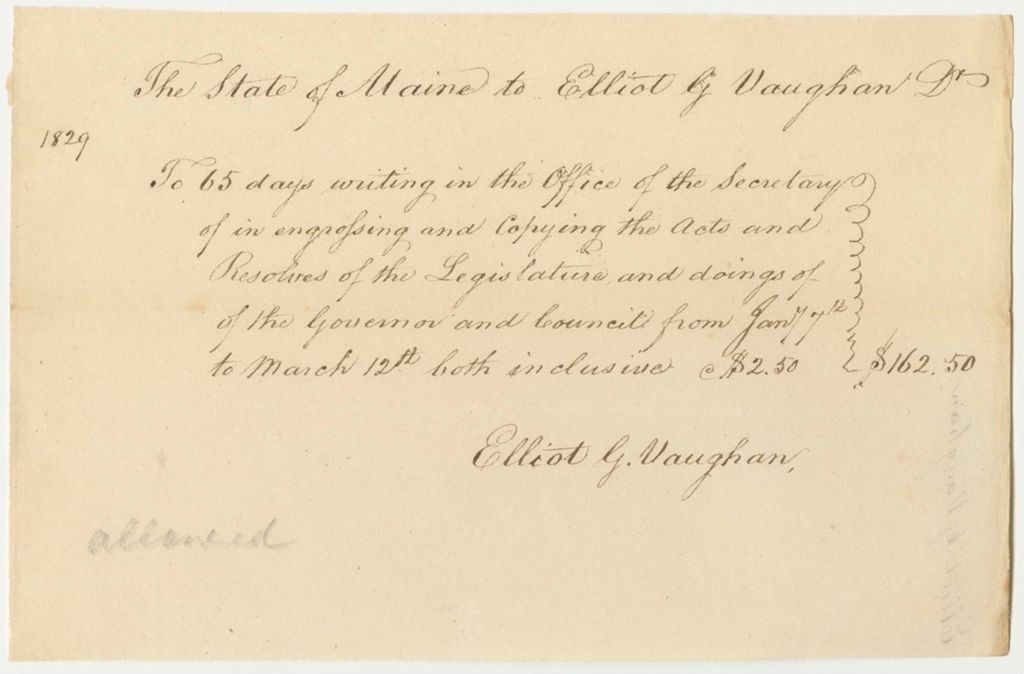 The State of Maine to Elliot G Vaughan Dr
1829
To 65 days writing in the Office of the Secretary
of in engrossing and Copying the Acts and
Resolves of the Legislature, and doings of
of the Governor and Council from Jany 7th
to March 12th both inclusive @ $2.50 $162.50
Elliot G. Vaughan,
allowed